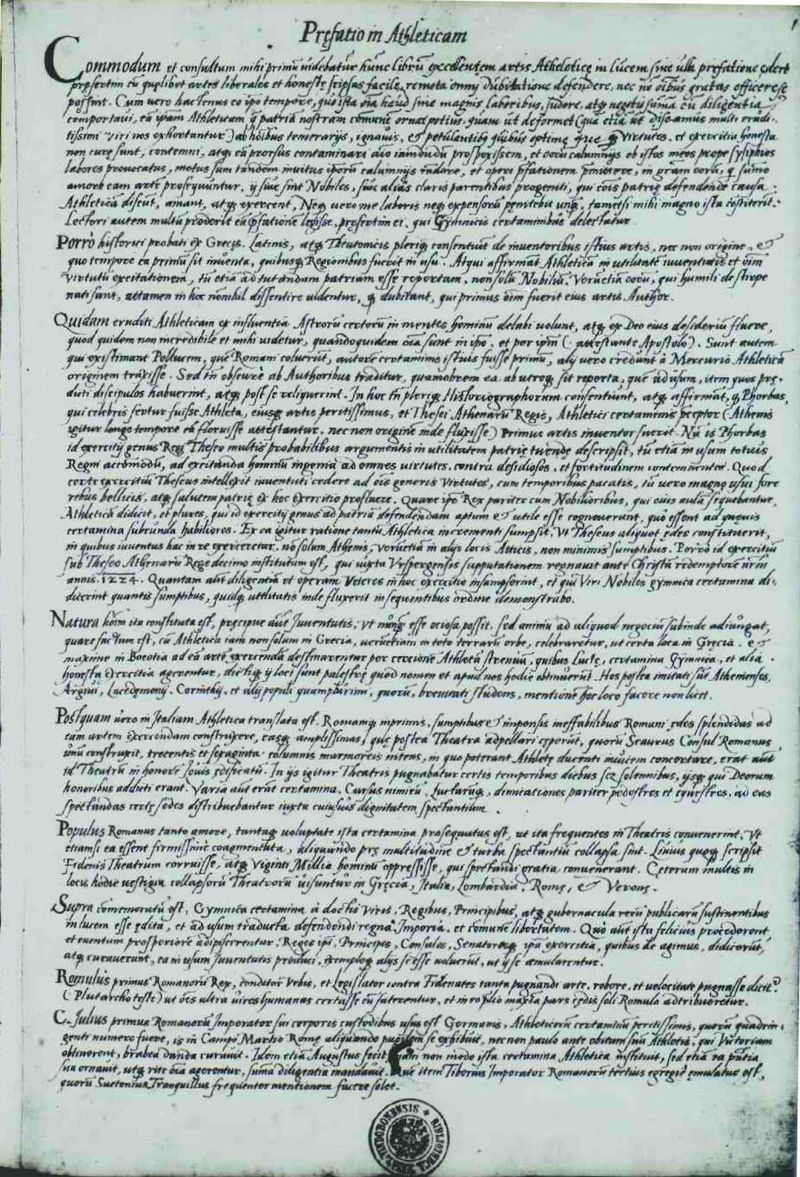 Prefatio in Athleticam
1
Commodum et consultum mihi primũ videbatur hunc librũ excellentem artis Atheleticę in lucem sine ulla prefatione edere
presertim cũ quilibet artes liberales et honestę seipsas facile, remota omnj dubitatione defendere, nec nõ
possint. Cum vero hactenus eo ipo tempore, quo ista oĩa haud sine magnis laboribus, sudore, atq summa cũ diligentia
comportavi, ea ipsam Athleticam q patria nostram ornat potius quam ut deformet (qua etiã ut discamus multi erudi-
tissimi viri nos exhortantur) ab hõibus temerarijs, ignavis, et petulantibq quibus optimę Virtutes, et exercitia honesta
non curę sunt, contemni, atq ea prorsus contaminari iamdudũ prospexissem, et eorũ calumnijs ob istos meos prope sysiphios
labores provocatus, motus sum tandem invitus iporũ calumnijs et operi pfationem in gram eorũ, q summo
amore eam artẽ prosequuntur, ij sive sint Nobiles, sive alias claris parentibus progeniti, qui cois patrię defendendę causa
Athleticã discut, amant, atq exercent, Neq vero me laboris neq expensorũ penitebit unq, tametsi mihi magno ista cõstiterit.
Lectori autem multũ proderit ea pfatione legisse, presertim ei, qui Gyminicis certaminibus delectatur.
Porrò historici probati ex Gręcis, Latinis, atq Theutonicis pleriq consentiũt de inventoribus istius artis, nec non origine, et
quo tempore ea primũ sit inventa, quibusq Regionibus fuerit in usu. Atqui affirmãt Athleticã in utilitatẽ iuventutis et oĩm
virtutũ excitationem, tũ etiã ad tutandam patriam esse repertam, non solũ Nobiliũ, Verũetiã eorũ, qui humili de stirpe
nati sunt, attamen in hoc nonnihil dissentire videntur, q dubitant, qui primus oĩm fuerit eius artis Author.
Quidam eruditi Athleticam ex influentia Astrorũ certorũ in mentes hominũ delabi volunt, atq ex Deo eius desideriũ fluere,
quod quidem non incredibile et mihi videtur, quandoquidem oĩa sunt in ipo, et per ipm (attestante Apostolo). Sunt autem
qui existimant Pollucem, quẽ Romani coluerũt, autorẽ certaminis istius fuisse primũ, alij vero credunt à Mercurio Athleticã
originem traxisse. Sed tñ obscurè ab Authoribus traditur, quamobrem ea ab utroq sit reperta, quẽ ad usum, item quos prę-
diti discipulos habuerint, atq post se reliquerint. In hoc tñ pleriq Historiographorum consentiunt, atq affirmãt, q Phorbas,
qui celebris fertur fuisse Athleta, eiusq artis peritissimus, et Thesei Athenarũ Regis, Athletici certaminis pceptor (Athenis
igitur longo tempore ea floruisse attestantur, nec non origine inde fluxisse) Primus artis inventor fuerit. Nã is Phorbas
id exercitij genus Regi Theseo multis probabilibus argumentis in utilitatem patrię tuendę descripsit, tũ etiã in usum totius
Regni accõmodũ, ad excitanda hominũ ingenia ad omnes virtutes, contra desidiosos, et fortitudinem contemnentes. Quod
certe exercitiũ Theseus intellexit iuventuti cedere ad ois generis Virtutes, cum temporibus pacatis, tũ vero magno usui fore
rebus bellicis, atq salutem patrię ex hoc exercitio profluere. Quare ipe Rex pariter cum Nobilioribus, qui eius aulã sequebantur,
Athleticã didicit, et plures, qui id exercitij genus ad patriã defendendam aptum et utile esse cognouerunt, quo essent ad quęuis
certamina subeunda habiliores. Ex ea igitur ratione tantũ Athletica incrementi sumpsit, Ut Theseus aliquot ędes constituerit,
in quibus iuventus hac in re exerceretur, nõ solum Athenis, verũetiã in alijs locis Atticis, non minimis sumptibus. Porrò id exercitiũ
sub Theseo Athenarũ Rege decimo institutum est, qui iuxta Urspergensis supputationem regnavit ante Christũ redemptorẽ nrm
annis. 1224. Quantam aũt diligentiã et operam Veteres in hoc exercitio insumpserint, et qui Viri Nobiles gymnica certamina di-
dicerint quantis sumptibus, quidq utilitatis inde fluxerit in sequentibus ordine demonstrabo.
Natura hoim ita constituta est, pręcipuè aũt Iuventutis, ut nunq esse ociosa possit, sed animũ ad aliquod negociũ subinde adiungat,
quare factum est, cũ Athletica iam non solum in Grecia, verũetiam in toto terrarũ orbe, celebraretur, ut certa loca in Grecia, et
maxime in Boeotia ad eã artẽ exercendã destinarentur per cercionẽ Athletã strenuũ, quibus Luctę, certamina Gymnica, et alia
honesta exercitia agerentur, dictiq ij loci sunt palestrę quod nomen et apud nos hodie obtinuerũt. Hos postea imitati sũt Athenienses,
Argiui, Lacedęmonij, Corinthij, et alij populi quamplurimi, quorũ, breuitati studens, mentionẽ hoc loco facere non licet.
Postquam vero in Italiam Athletica translata est, Romamq inprimis, sumptibus et impensis ineffabilibus Romani ędes splendidas ad
eam artem exercendam construxere, easq amplissimas, quę postea Theatra adpellari cęperũt, quorũ Scaurus Consul Romanus
unũ construxit, trecentis et sexaginta columnis marmoreis nitens, in quo poterant Athletę ducenti invicem concertare, erat aũt
id Theatrũ in honorẽ Iouis ędificatũ. In ijs igitur Theatris pugnabatur certis temporibus diebus scz solennibus, ijsq qui Deorum
honoribus adducti erant. Varia aũt erãt certamina, Cursus nimirũ, Luctarũq, dimicationes pariter pedestres et equestres, ad eas
spectandas certę sedes distribuebantur iuxta cuiusuis dignitatem spectantium.
Populus Romanus tanto amore, tantaq voluptate ista certamina prosequutus est, ut ita frequentes in Theatris convenerint, Ut
etiamsi ea essent firmissimè coagmentata, aliquando prę multitudine et turba spectantiũ collapsa sint. Livius quoq scripsit
Fidenis Theatrum corruisse, atq Viginti Millia hominũ oppressisse, qui spectandi gratia convenerant. Ceterum multis in
locis hodie uestigia collapsorũ Theatrorũ uisuntur in Gręcia, Italia, Lombardia, Romę, et Veronę.
Supra cõmemoratũ est, Gymnica certamina à doctis Viris, Regibus, Principibus, atq gubernacula rerũ publicarũ sustinentibus
in lucem esse edita, et ad usum traducta defendendi regna, Imperia, et comunẽ libertatem. Quo aũt ista felicius procederent
et euentum prosperiorẽ adipiscerentur, Reges ipsi, Principes, Consules, Senatoresq ipsi exercitia, quibus de agimus, didicerũt,
atq curauerunt, ea in usum Iuventutis produci, exemploq alijs sese uoluerũt, ut ij se ęmularentur.
Romulus primus Romanorũ Rex, conditor Urbis, et legislator contra Fidenates tanta pugnandi arte, robore, et velocitate pugnasse dicitr
(Plutarcho teste) ut oẽs ultra uires humanas certasse eũ faterentur, et in eo prelio maxĩa pars cędis soli Romulo adtribueretur.
C. Julius primus Romanorũ Imperator sui corporis custodibus usus est Germanis, Athleticorũ certaminũ peritissimis, quorũ quadrin-
genti numero fuere, is in Campo Martio Romę aliquando pugilem se exhibuit, nec non paulo ante obitum suũ Athletis, qui Victoriam
obtinerent, brabea danda curauit. Idem etiã Augustus fecit, nam non modo ista certamina Athletica instituit, sed etiã ea pñtia
sua ornauit, utq rite oĩa agerentur, summa diligentia mandauit. item Tiberius Imperator Romanorũ tertius egregiè ęmulatus est,
quorũ Suetonius Tranquillus frequenter mentionem facere solet.